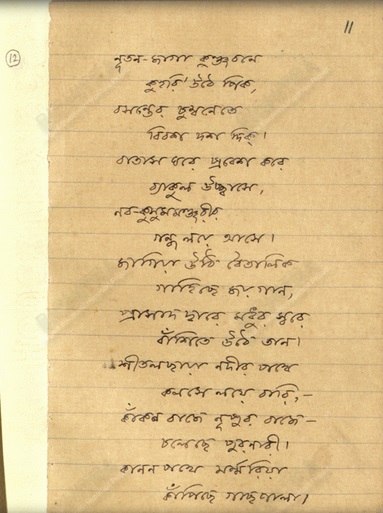 11
12
নূতন-জাগা কুঞ্জবনে
কুহরি' উঠে পিক,
বসন্তের চুম্বনেতে
বিবশ দশ দিক্।
বাতাস ঘরে প্রবেশ করে
ব্যাকুল উচ্ছ্বাসে,
নব-কুসুমমঞ্জরীর
গন্ধ লয়ে আসে।
জাগিয়া উঠি বৈতালিক
গাহিছে জয়গান,
প্রাসাদ দ্বারে মধুর সুরে
বাঁশিতে উঠে তান।
শীতলছায়া নদীর পথে
কলসে লয়ে বারি,—
কাঁকন বাজে নূপুর বাজে—
চলেছে পুরনারী।
কানন পথে মর্ম্মরিয়া
কাঁপিছে গাছপালা।